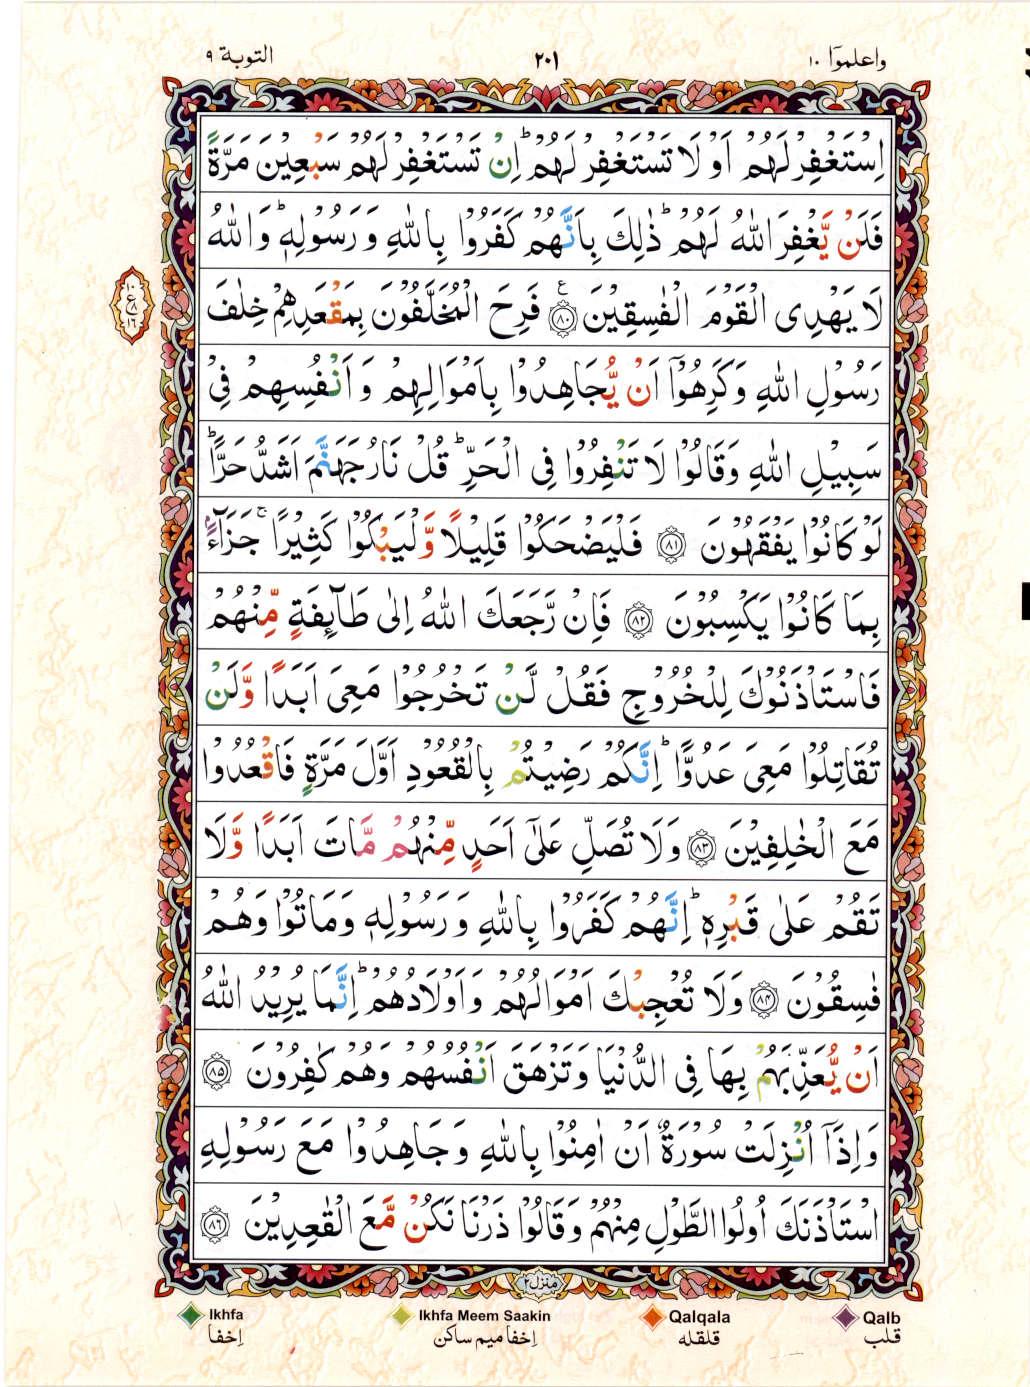 واعلموٓا ١٠
٢٠١
التوبة ٩
اِسْتَغْفِرْ لَهُمْ اَوْ لَا تَسْتَغْفِرْ لَهُمْ ؕ اِنْ تَسْتَغْفِرْ لَهُمْ سَبْعِيْنَ مَرَّةً
فَلَنْ يَّغْفِرَ اللّٰهُ لَهُمْ ؕ ذٰلِكَ بِاَنَّهُمْ كَفَرُوْا بِاللّٰهِ وَ رَسُوْلِهٖ ؕ وَ اللّٰهُ
لَا يَهْدِى الْقَوْمَ الْفٰسِقِيْنَ ۧ ﴿٨٠﴾ فَرِحَ الْمُخَلَّفُوْنَ بِمَقْعَدِهِمْ خِلٰفَ
١٠
ع ٨
١٦
رَسُوْلِ اللّٰهِ وَ كَرِهُوْۤا اَنْ يُّجَاهِدُوْا بِاَمْوَالِهِمْ وَ اَنْفُسِهِمْ فِىْ
سَبِيْلِ اللّٰهِ وَ قَالُوْا لَا تَنْفِرُوْا فِى الْحَرِّ ؕ قُلْ نَارُ جَهَنَّمَ اَشَدُّ حَرًّا ؕ
لَوْ كَانُوْا يَفْقَهُوْنَ ﴿٨١﴾ فَلْيَضْحَكُوْا قَلِيْلًا وَّلْيَبْكُوْا كَثِيْرًا ۚ جَزَآءًۢ
بِمَا كَانُوْا يَكْسِبُوْنَ ﴿٨٢﴾ فَاِنْ رَّجَعَكَ اللّٰهُ اِلٰى طَآئِفَةٍ مِّنْهُمْ
فَاسْتَاْذَنُوْكَ لِلْخُرُوْجِ فَقُلْ لَّنْ تَخْرُجُوْا مَعِىَ اَبَدًا وَّلَنْ
تُقَاتِلُوْا مَعِىَ عَدُوًّا ؕ اِنَّكُمْ رَضِيْتُمْ بِالْقُعُوْدِ اَوَّلَ مَرَّةٍ فَاقْعُدُوْا
مَعَ الْخٰلِفِيْنَ ﴿٨٣﴾ وَلَا تُصَلِّ عَلٰٓى اَحَدٍ مِّنْهُمْ مَّاتَ اَبَدًا وَّلَا
تَقُمْ عَلٰى قَبْرِهٖ ؕ اِنَّهُمْ كَفَرُوْا بِاللّٰهِ وَ رَسُوْلِهٖ وَ مَاتُوْا وَهُمْ
فٰسِقُوْنَ ﴿٨٤﴾ وَلَا تُعْجِبْكَ اَمْوَالُهُمْ وَ اَوْلَادُهُمْ ؕ اِنَّمَا يُرِيْدُ اللّٰهُ
اَنْ يُّعَذِّبَهُمْ بِهَا فِى الدُّنْيَا وَ تَزْهَقَ اَنْفُسُهُمْ وَهُمْ كٰفِرُوْنَ ﴿٨٥﴾
وَ اِذَاۤ اُنْزِلَتْ سُوْرَةٌ اَنْ اٰمِنُوْا بِاللّٰهِ وَ جَاهِدُوْا مَعَ رَسُوْلِهِ
اسْتَاْذَنَكَ اُولُوا الطَّوْلِ مِنْهُمْ وَ قَالُوْا ذَرْنَا نَكُنْ مَّعَ الْقٰعِدِيْنَ ﴿٨٦﴾
منزل ٢
Ikhfa Ikhfa Meem Saakin Qalqala Qalb
اِخفا اِخفا میم ساکن قلقله قلب